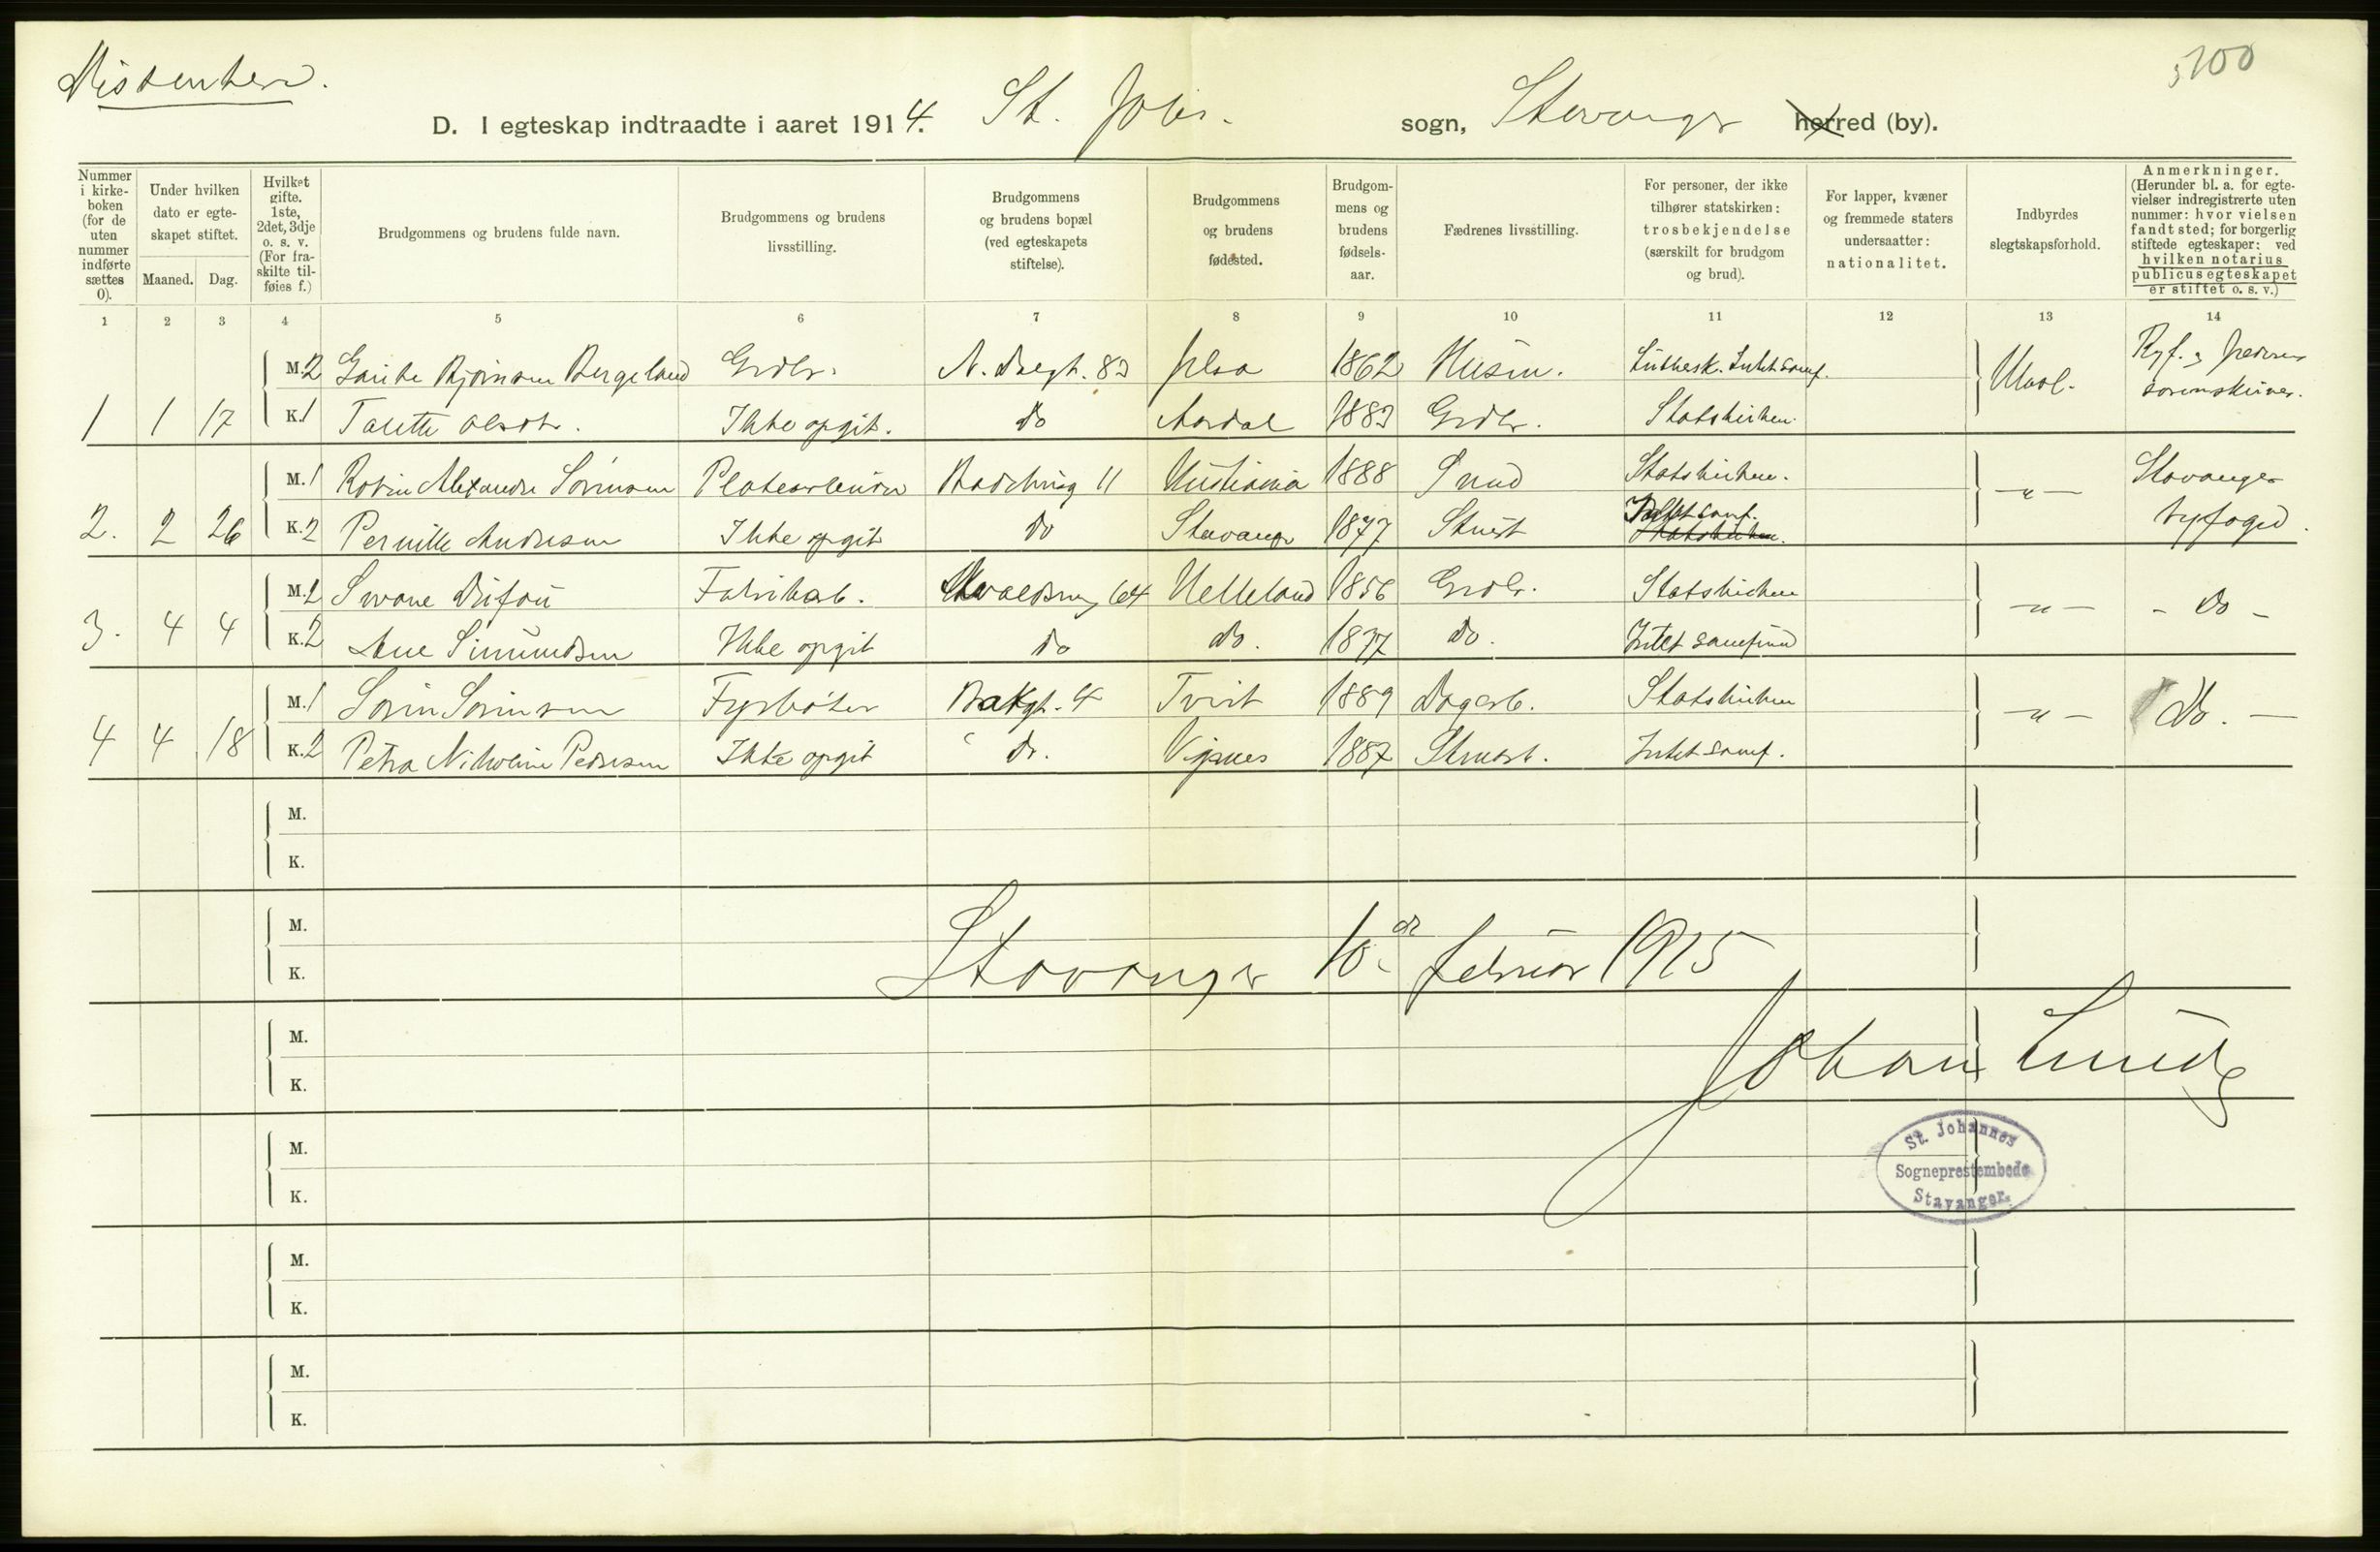 Dissentere.
100
D. I egteskap indtraadte i aaret 1914. St. Johs. sogn, Stavanger herred (by).
Nummer i kirke-boken (for de uten nummer indførte sættes 0).
Under hvilken dato er egte-skapet stiftet.
Maaned. Dag.
Hvilket gifte. 1ste, 2det, 3dje o. s. v. (For fra-skilte til-føies f.)
Brudgommens og brudens fulde navn.
Brudgommens og brudens livsstilling.
Brudgommens og brudens bopæl (ved egteskapets stiftelse).
Brudgommens og brudens fødested.
Brudgom-mens og brudens fødsels-aar.
Fædrenes livsstilling.
For personer, der ikke tilhører statskirken: trosbekjendelse (særskilt for brudgom og brud).
For lapper, kvæner og fremmede staters undersaatter: nationalitet.
Indbyrdes slegtskapsforhold.
Anmerkninger. (Herunder bl. a. for egte-vielser indregistrerte uten nummer: hvor vielsen fandt sted; for borgerlig stiftede egteskaper: ved hvilken notarius publicus egteskapet er stiftet o. s. v.)
1 2 3 4 5 6 7 8 9 10 11 12 13 14
M. 2 Gaute Bjørnsen Bergeland Grdbr. 83 Jelsa 1862 Husm. Intet samf. Ubesl. Ryf. og Jæderens sorenskriver.
1 1 17 K. 1 Talette Olsdtr. Ikke opgit. do Aardal 1883 Grdbr. Statskirken.
M. 1 Robin Alexander Sørensen Platearbeider 11 Kristiania 1888 Smed Statskirken. -"- Stavanger byfoged.
2. 2 26 K. 2 Pernille Andersen Ikke opgit do Stavanger 1877 Intet samf. Statskirken.
M. 2 Svane Fabrikarb. 64 Helleland 1856 Grdbr. Statskirken -"- - do -
3. 4 4 K. 2 Ane Simundsen Ikke opgit do do. 1877 do. Intet samfund
M. 1 Søren Sørensen Fyrbøter Bakgt. 4 Tveit 1889 Dagarb. Statskirken -"- Do. -
4 4 18 K. 2 Petra Nikoline Pedersen Ikke opgit do. Vignes 1887 Intet samf.
M.
K.
M.
K.
Stavanger 10de februar 1915
M.
K.
Johan Lunde
M.
K.
St. Johannes
Sogneprestembede
Stavanger.
M.
K.
M.
K.